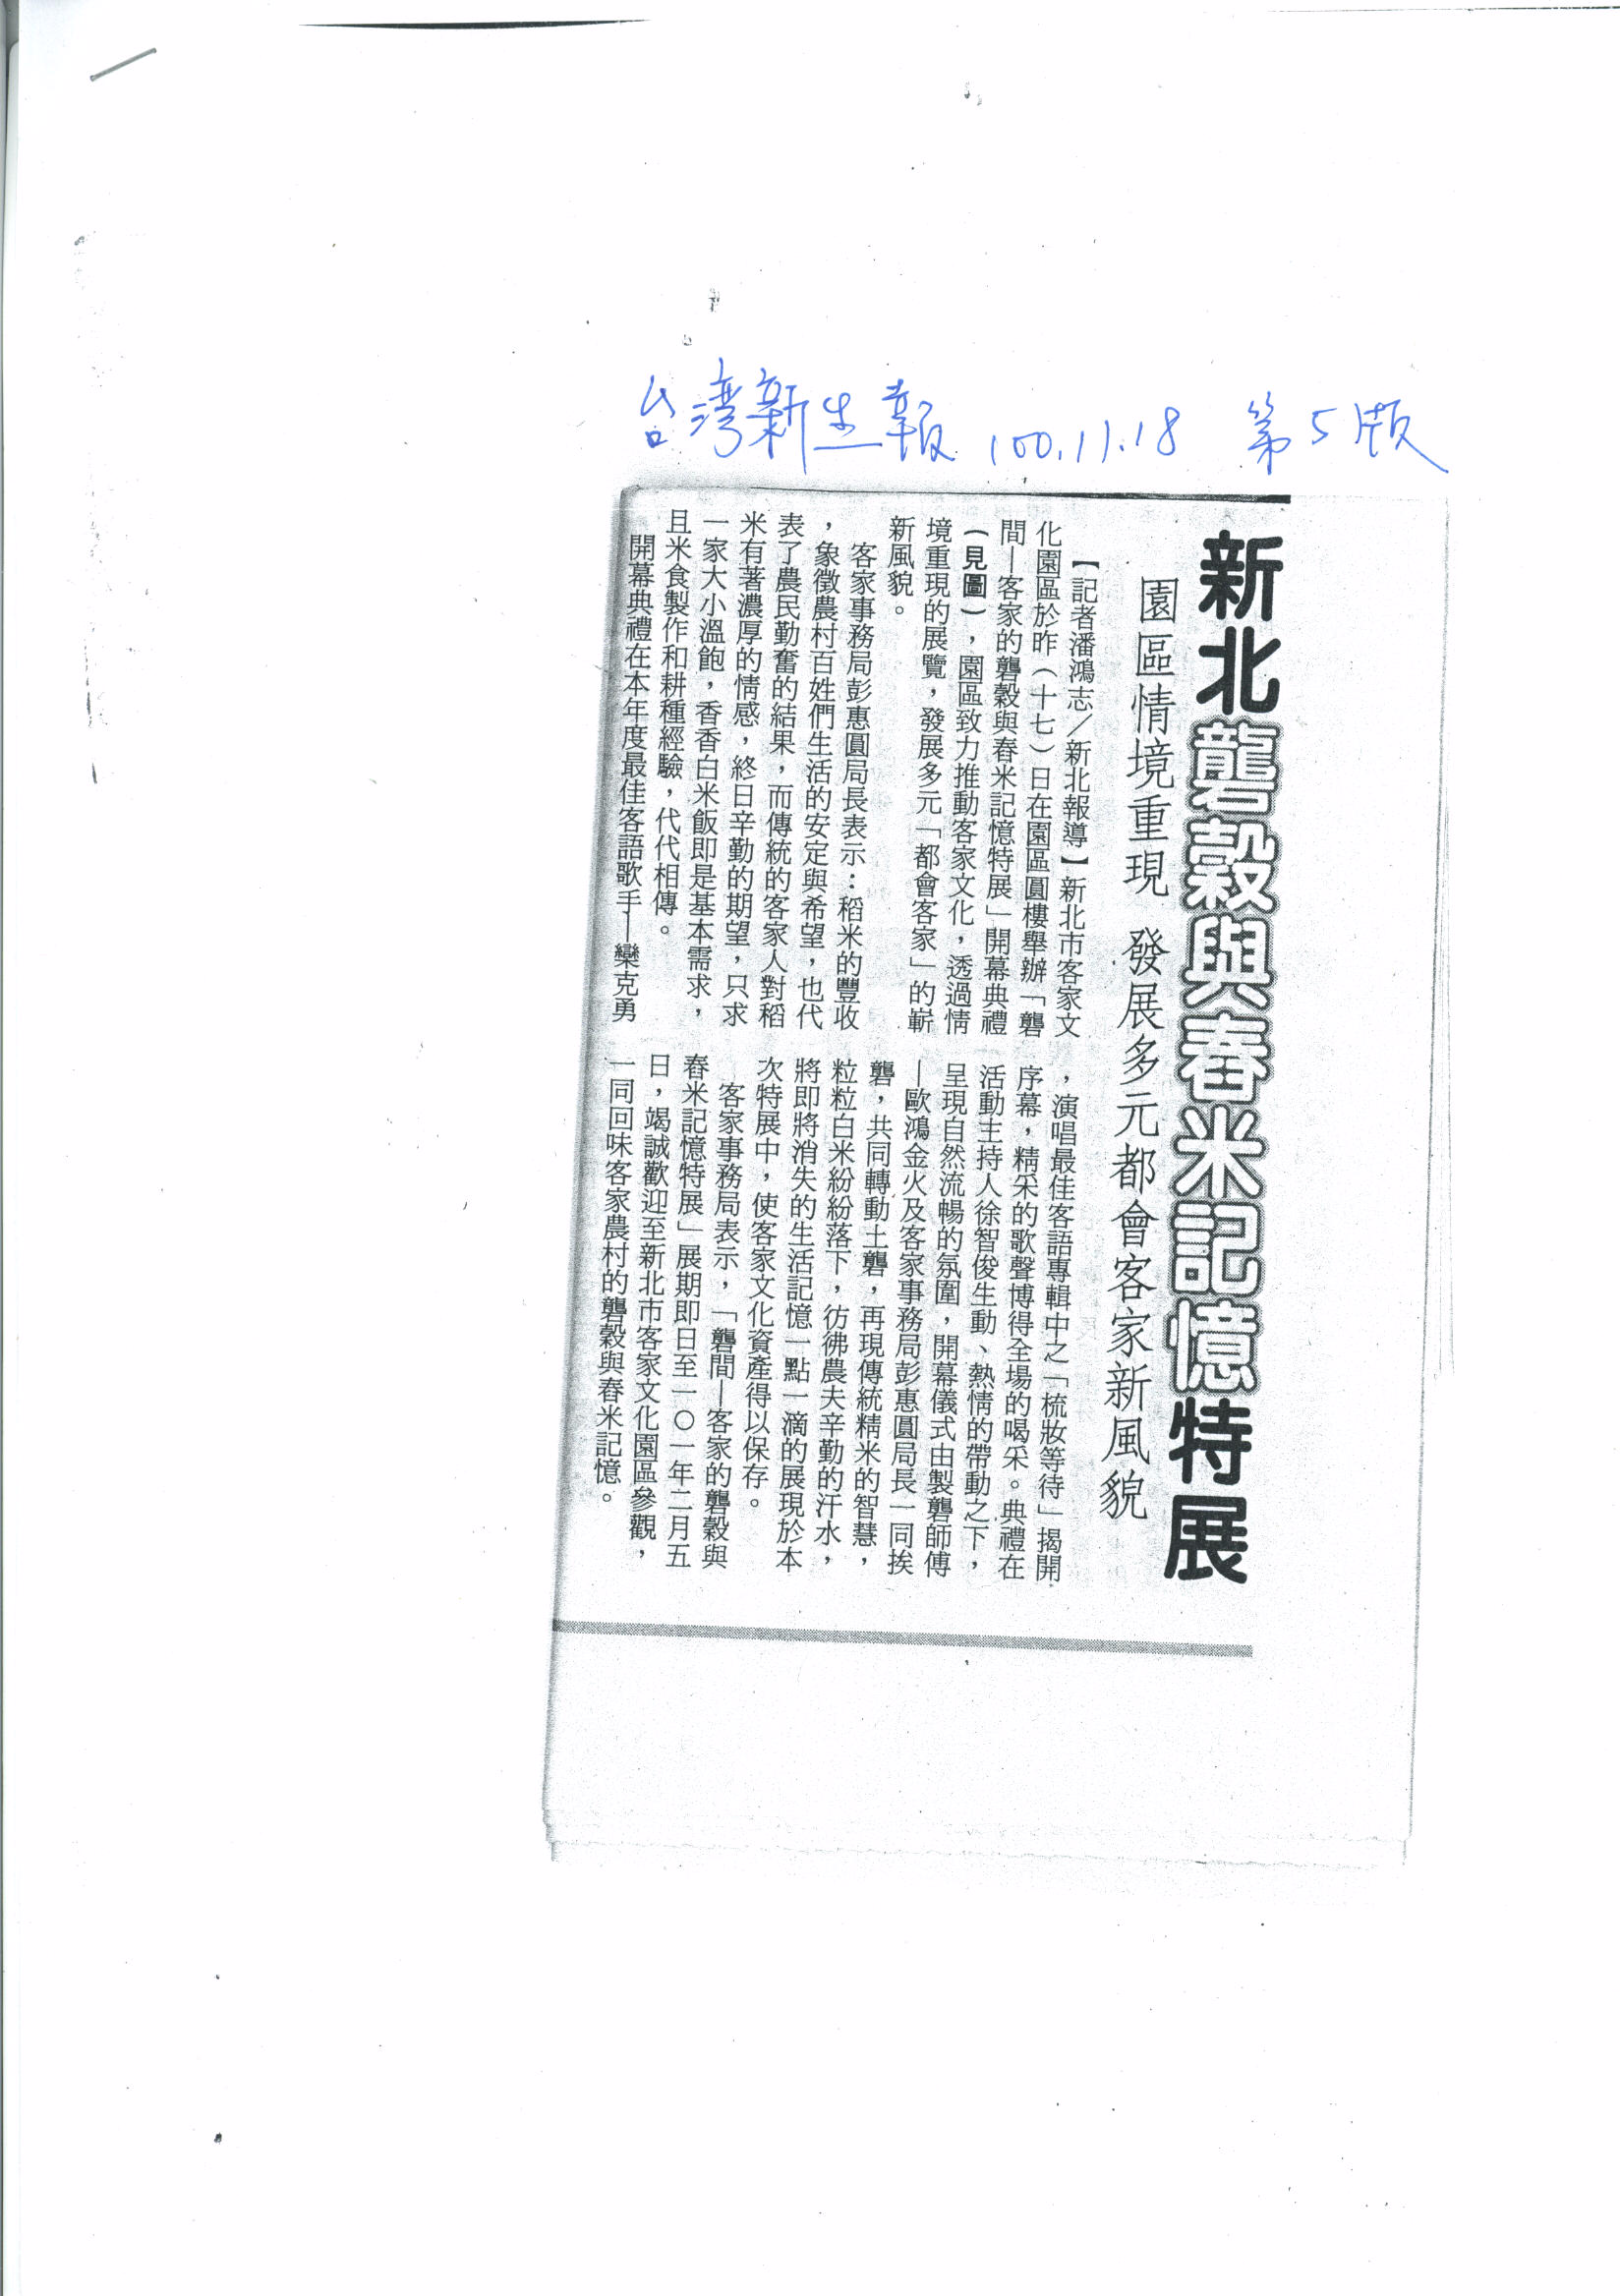 台灣新生報 100.11.18 第5版
新北礱穀與舂米記憶特展
園區情境重現 發展多元都會客家新風貌
【記者潘鴻志／新北報導】新北市客家文
化園區於昨（十七）日在園區圓樓舉辦「礱
間—客家的礱穀與舂米記憶特展」開幕典禮
（見圖），園區致力推動客家文化，透過情
境重現的展覽，發展多元「都會客家」的嶄
新風貌。
客家事務局彭惠圓局長表示：稻米的豐收
，象徵農村百姓們生活的安定與希望，也代
表了農民勤奮的結果，而傳統的客家人對稻
米有著濃厚的情感，終日辛勤的期望，只求
一家大小溫飽，香香白米飯即是基本需求，
且米食製作和耕種經驗，代代相傳。
開幕典禮在本年度最佳客語歌手—欒克勇
，演唱最佳客語專輯中之「梳妝等待」揭開
序幕，精采的歌聲博得全場的喝采。典禮在
活動主持人徐智俊生動、熱情的帶動之下，
呈現自然流暢的氛圍，開幕儀式由製礱師傅
—歐鴻金火及客家事務局彭惠圓局長一同挨
礱，共同轉動土礱，再現傳統精米的智慧，
粒粒白米紛紛落下，彷彿農夫辛勤的汗水，
將即將消失的生活記憶一點一滴的展現於本
次特展中，使客家文化資產得以保存。
客家事務局表示，「礱間—客家的礱穀與
舂米記憶特展」展期即日至一〇一年二月五
日，竭誠歡迎至新北市客家文化園區參觀，
一同回味客家農村的礱穀與舂米記憶。